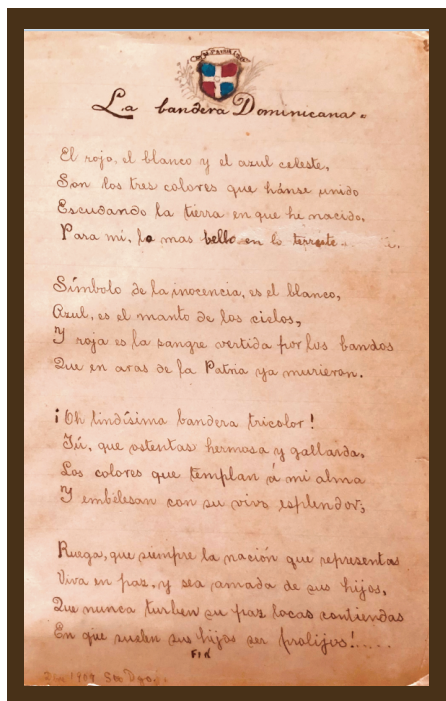 La bandera Dominicana.
El rojo, el blanco y el azul celeste,
Son los tres colores que hánse unido
Escudando la tierra en que he nacido,
Para mi, lo mas bello en lo terreste
Símbolo de la inocencia, es el blanco,
Azul, es el manto de los cielos,
Y roja es la sangre vertida por los bandos
Que en aras de la Patria ya murieron.
¡Oh lindísima bandera tricolor!
Tú, que ostentas hermosa y gallarda,
Los colores que templan á mi alma
Y embelesan con su vivo esplendor;
Ruega, que siempre la nación que representas
Viva en paz, y sea amada de sus hijos,
Que nunca turben su paz locas contiendas
En que suelen sus hijos ser prolijos!.....
FIN
1904 Sto Dgo.